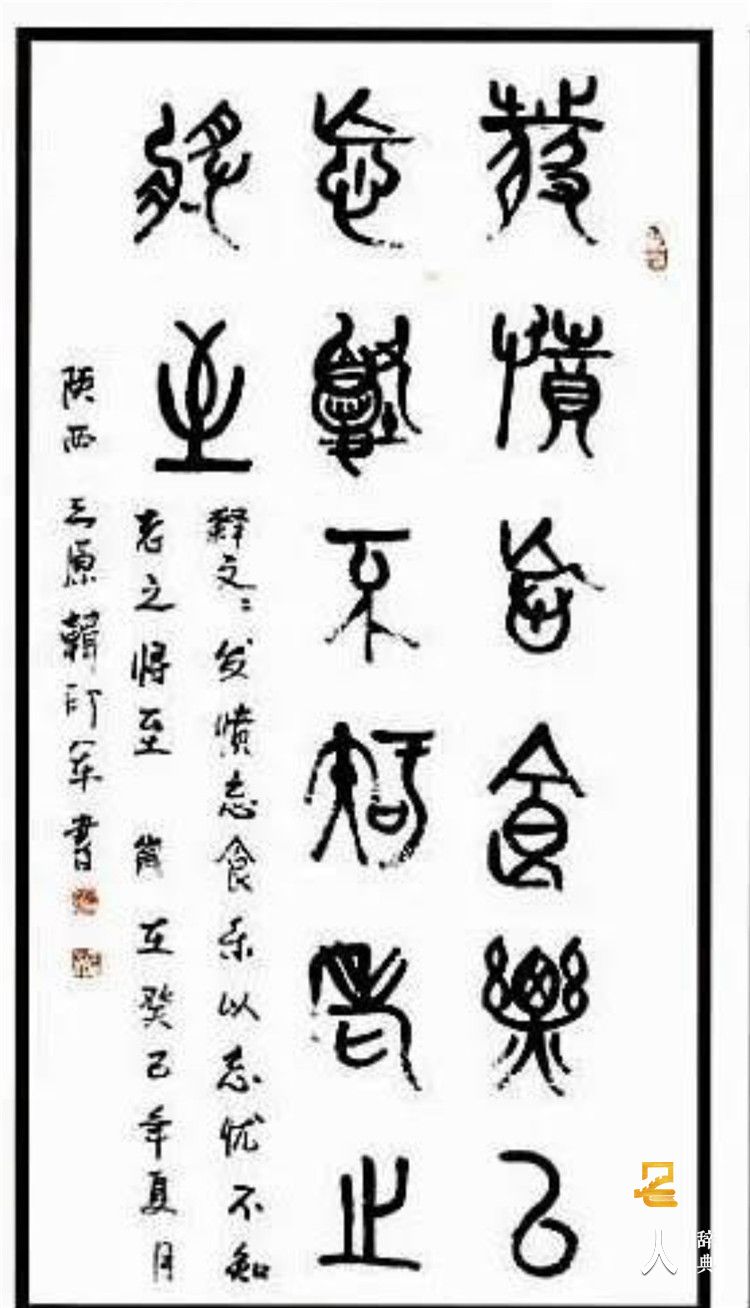 發憤忘食樂以
忘憂不知老之
將至
释文：发愤忘食乐以忘忧不知
老之将至 歲在癸巳年夏月
陕西三原韓印军書
人
辞典